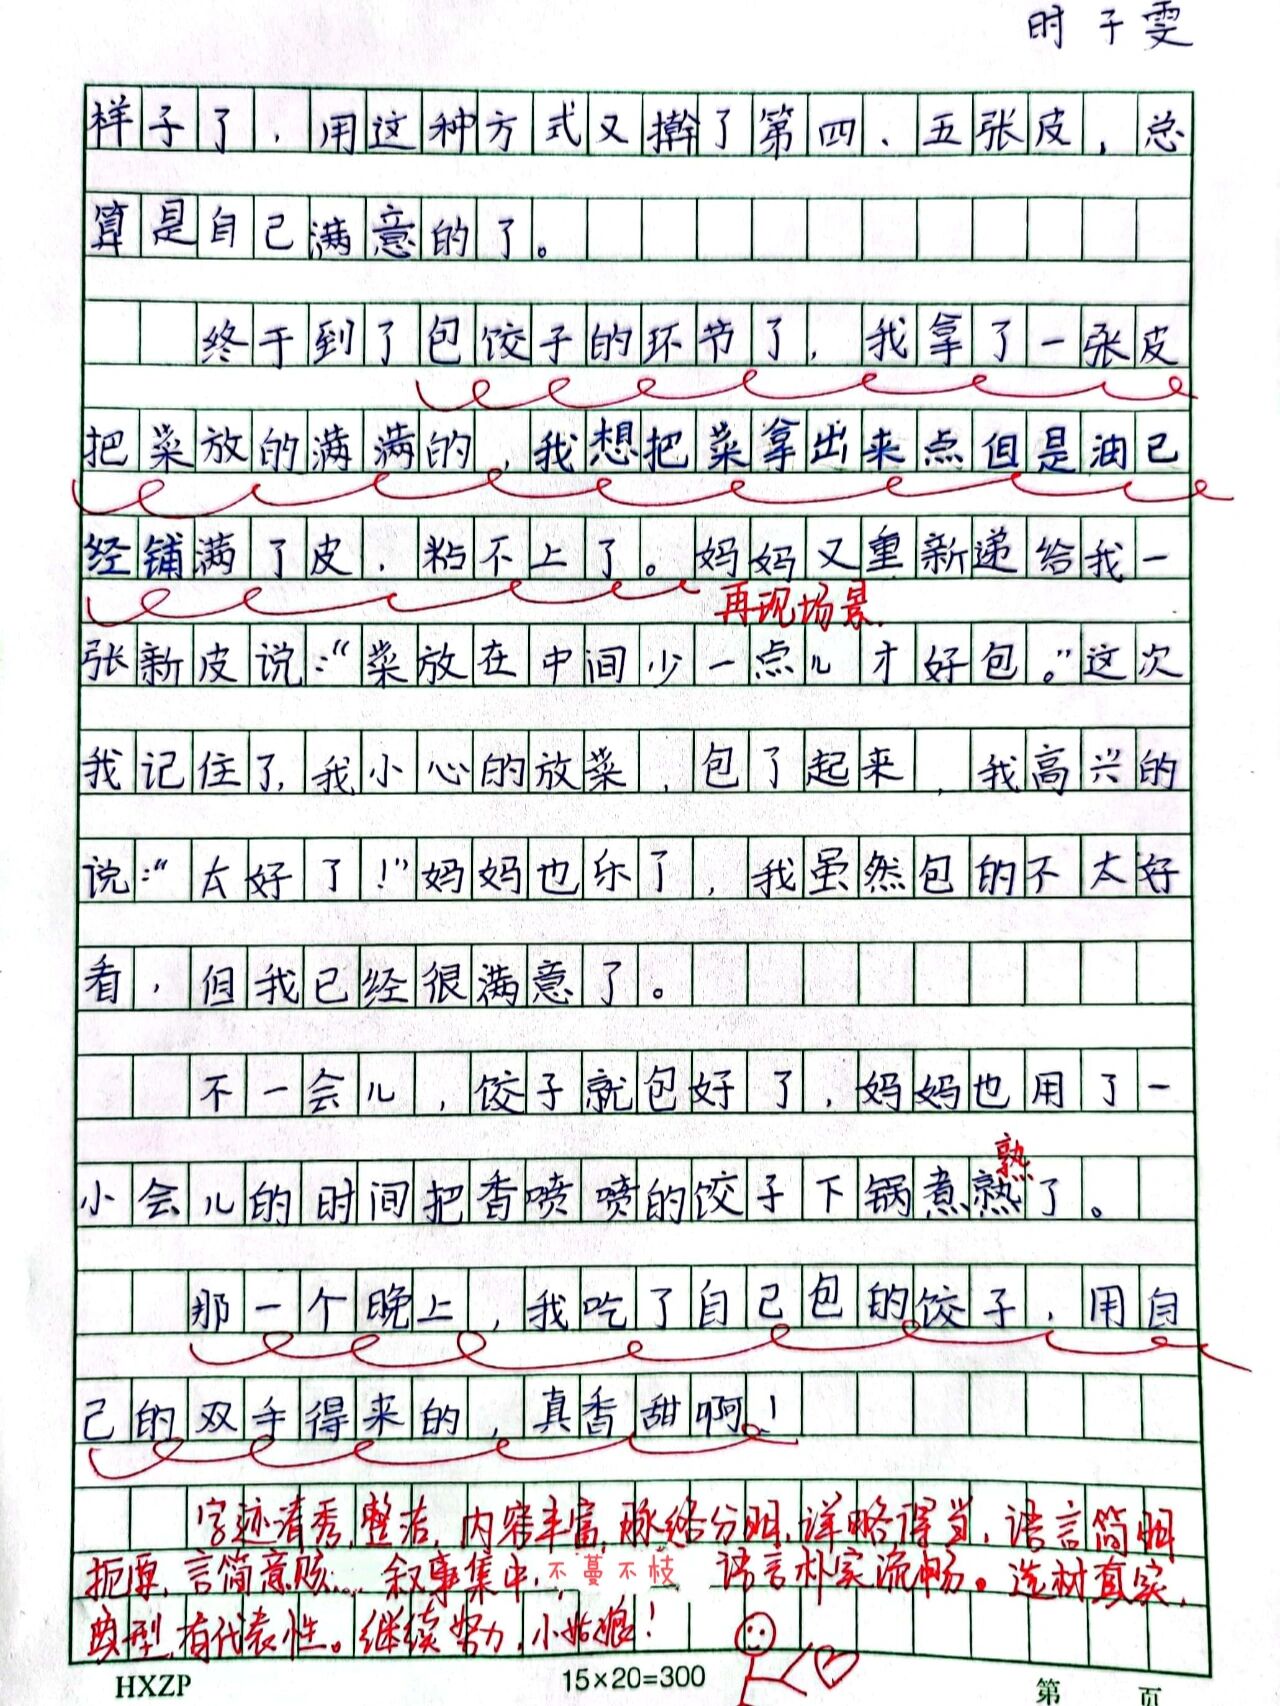 时子雯
样子了，用这种方式又擀了第四、五张皮，总
算是自己满意的了。
终于到了包饺子的环节了，我拿了一张皮
把菜放的满满的，我想把菜拿出来点但是油已
经铺满了皮，粘不上了。妈妈又重新递给我一
再现场景.
张新皮说：“菜放在中间少一点儿才好包。”这次
我记住了，我小心的放菜，包了起来，我高兴的
说：“太好了！”妈妈也乐了，我虽然包的不太好
看，但我已经很满意了。
不一会儿，饺子就包好了，妈妈也用了一
熟
小会儿的时间把香喷喷的饺子下锅煮熟了。
那一个晚上，我吃了自己包的饺子，用自
己的双手得来的，真香甜啊！
字迹清秀，整洁，内容丰富，脉络分明，详略得当，语言简明
扼要，言简意赅……叙事集中，不蔓不枝 语言朴实流畅。选材真实，
典型，有代表性。继续努力，小姑娘！
HXZP 15×20=300 第 页